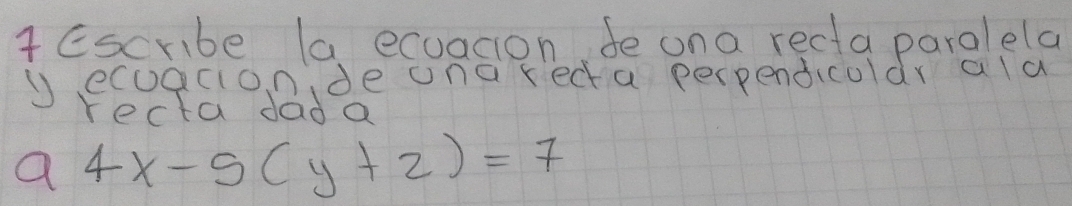 7 Escribe la ecuacion de una recta paralela
y ecuacion, de una recta perpendicular a la
recta dada
a 4x-5(y+2)=7